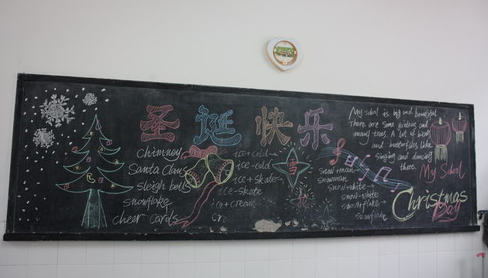 圣诞快乐
chimney
Santa Claus
sleigh bells
snowflake
cheer cards
ice+cold→
ice-cold
ice+skate→
ice-skate
ice+cream→
snow+man→
snowman
snow+white→
snow-white
snow+flake→
snowflake
My school is big and beautiful.
There are some
many trees. A lot of birds
and butterflies like
singing and dancing
there.
My School
Christmas
Day